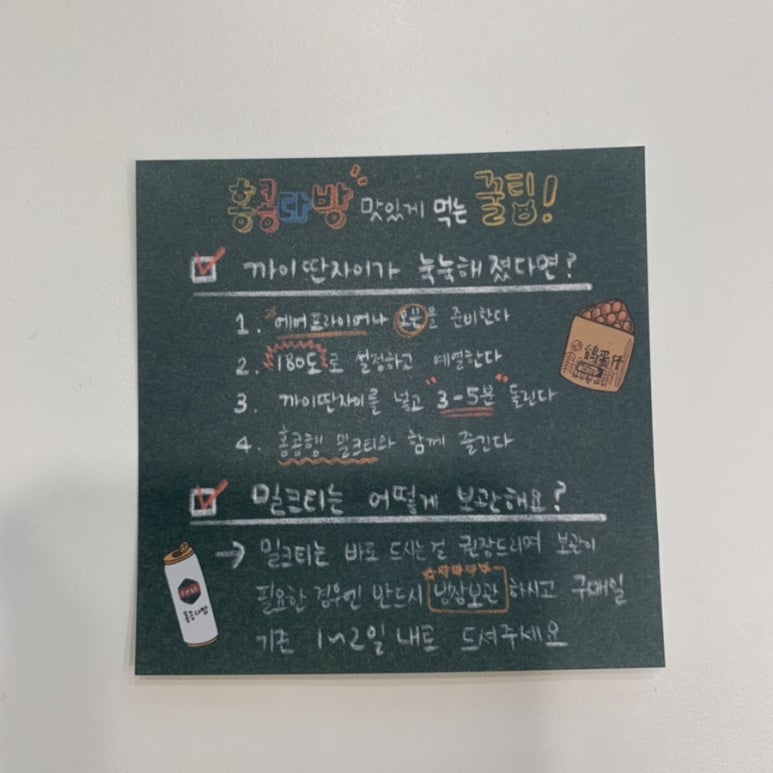 홍콩다방 맛있게 먹는 꿀팁!
까이딴자이가 눅눅해졌다면?
1. 에어프라이어나 오븐을 준비한다
2. 180도로 설정하고 예열한다
3. 까이딴자이를 넣고 "3-5분" 돌린다
4. 홍콤행 밀크티와 함께 즐긴다
밀크티는 어떻게 보관해요?
→ 밀크티는 바로 드시는걸 권장드리며 보관이
필요한 경우엔 반드시 냉장보관 하시고 구매일
기준 1~2일 내로 드셔주세요
홍콩다방